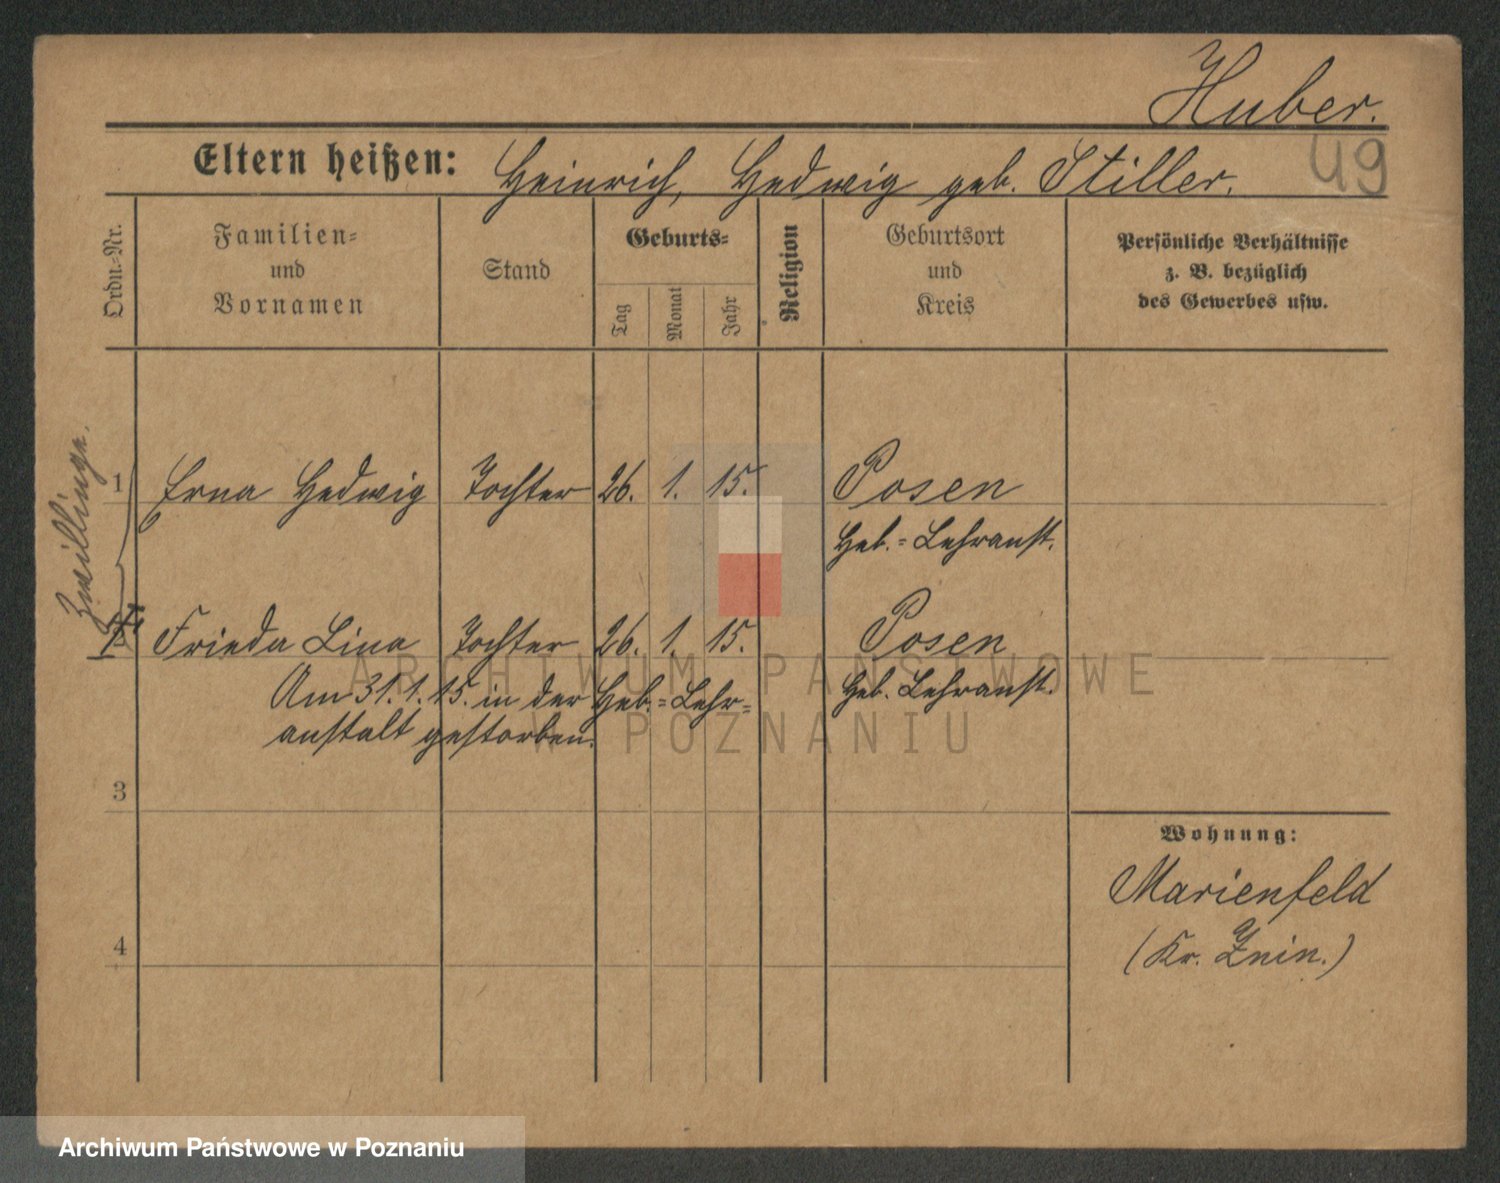 Huber.
Eltern heißen: Heinrich, Hedwig geb. Stiller.
49
Ordn.-Nr.
Familien-
und
Vornamen
Stand
Geburts-
Tag
Monat
Jahr
Religion
Geburtsort
und
Kreis
Persönliche Verhältnisse
z. B. bezüglich
des Gewerbes usw.
Zwillinge.
1 Erna Hedwig Tochter 26. 1. 15. Posen
Heb.=Lehranst.
Frieda Lina Tochter 26. 1. 15. Posen
Heb. Lehranst.
Am 31.1.15. in der Heb.=Lehr=
anstalt gestorben.
3
4
Wohnung:
Marienfeld
(Kr. Znin.)
ARCHIWUM PAŃSTWOWE
W POZNANIU
Archiwum Państwowe w Poznaniu